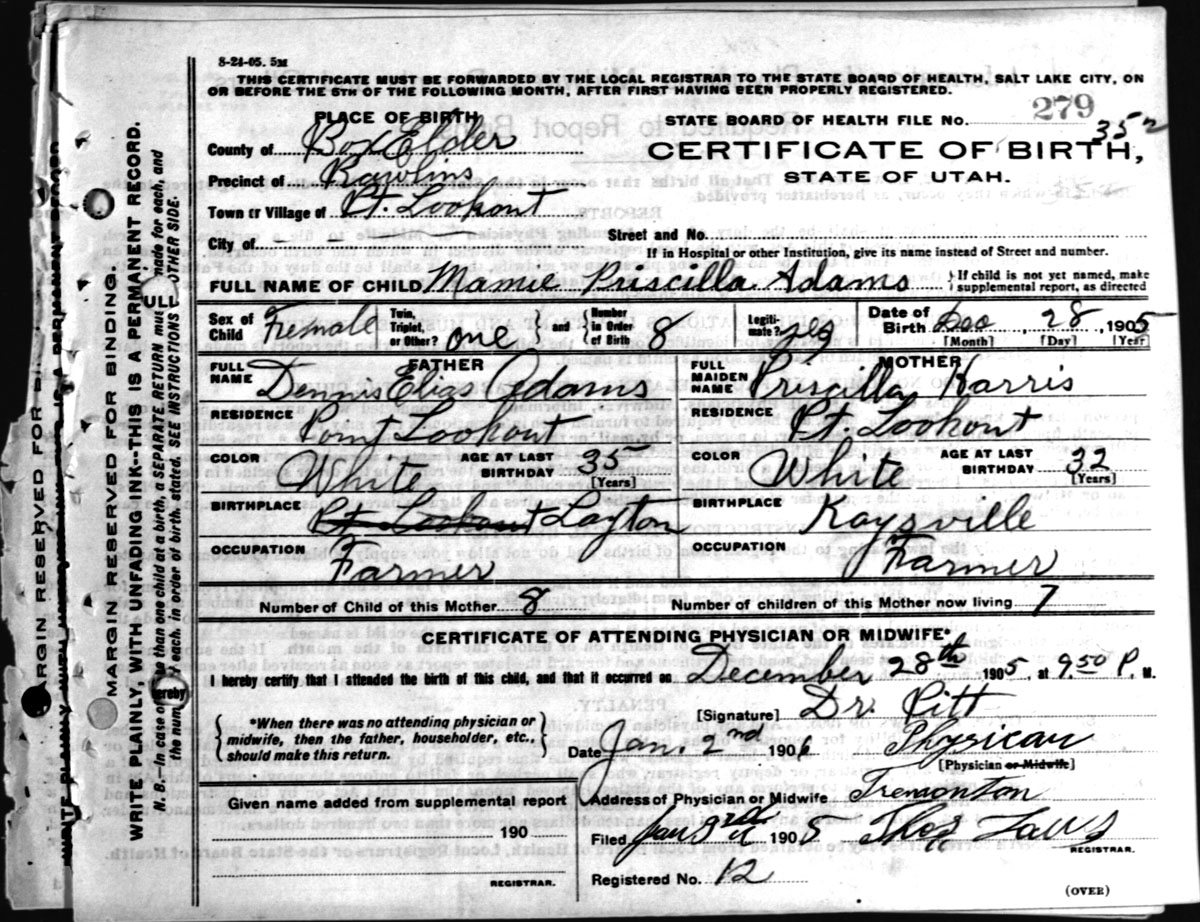 8-24-05. 5M
THIS CERTIFICATE MUST BE FORWARDED BY THE LOCAL REGISTRAR TO THE STATE BOARD OF HEALTH, SALT LAKE CITY, ON
OR BEFORE THE 5TH OF THE FOLLOWING MONTH, AFTER FIRST HAVING BEEN PROPERLY REGISTERED.
PLACE OF BIRTH
STATE BOARD OF HEALTH FILE NO. 279
352
County of Box Elder
CERTIFICATE OF BIRTH,
Precinct of Rawlins
STATE OF UTAH.
Town or Village of Pt. Lookout
City of - - - -
Street and No.
If in Hospital or other Institution, give its name instead of Street and number.
FULL NAME OF CHILD Mamie Priscilla Adams
} If child is not yet named, make
supplemental report, as directed
Sex of Child Female Twin, Triplet, or Other? one } and { Number in Order of Birth 8 Legiti- mate? yes Date of Birth Dec, 28, 1905
[Month] [Day] [Year]
FATHER
FULL NAME Dennis Elias Adams
MOTHER
FULL MAIDEN NAME Priscilla Harris
RESIDENCE Point Lookout
RESIDENCE Pt. Lookout
COLOR White AGE AT LAST BIRTHDAY 35 [Years]
COLOR White AGE AT LAST BIRTHDAY 32 [Years]
BIRTHPLACE Pt. Lookout Layton
BIRTHPLACE Kaysville
OCCUPATION Farmer
OCCUPATION Farmer
Number of Child of this Mother 8 Number of children of this Mother now living 7
CERTIFICATE OF ATTENDING PHYSICIAN OR MIDWIFE*
I hereby certify that I attended the birth of this child, and that it occurred on December 28th 1905, at 9.50 P. M.
[Signature] Dr. Pitt
{ *When there was no attending physician or
midwife, then the father, householder, etc.,
should make this return. }
Date Jan. 2nd 1906 Physican
[Physician or Midwife]
Address of Physician or Midwife Tremonton
Given name added from supplemental report
190
Filed Jan 3rd 190
REGISTRAR.
REGISTRAR.
Registered No. 12
(OVER)
MARGIN RESERVED FOR BINDING.
WRITE PLAINLY, WITH UNFADING INK--THIS IS A PERMANENT RECORD.
N. B.--In case of more than one child at a birth, a SEPARATE RETURN must be made for each, and
the number of each, in order of birth, stated. SEE INSTRUCTIONS OTHER SIDE.